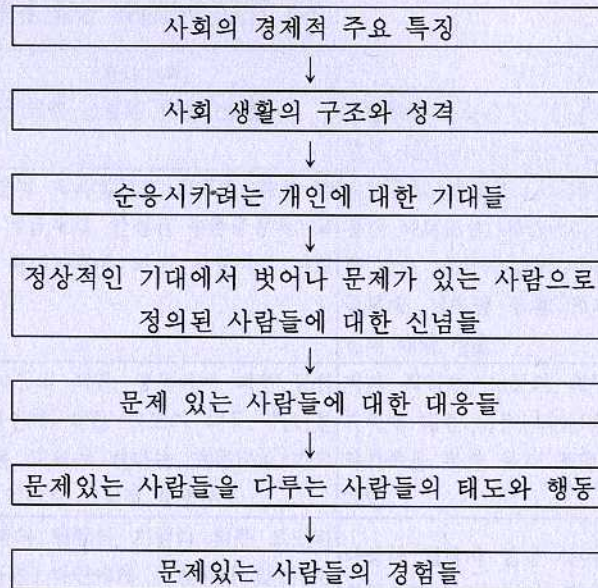 사회의 경제적 주요 특징
사회 생활의 구조와 성격
순응시키려는 개인에 대한 기대들
정상적인 기대에서 벗어나 문제가 있는 사람으로
정의된 사람들에 대한 신념들
문제 있는 사람들에 대한 대응들
문제있는 사람들을 다루는 사람들의 태도와 행동
문제있는 사람들의 경험들